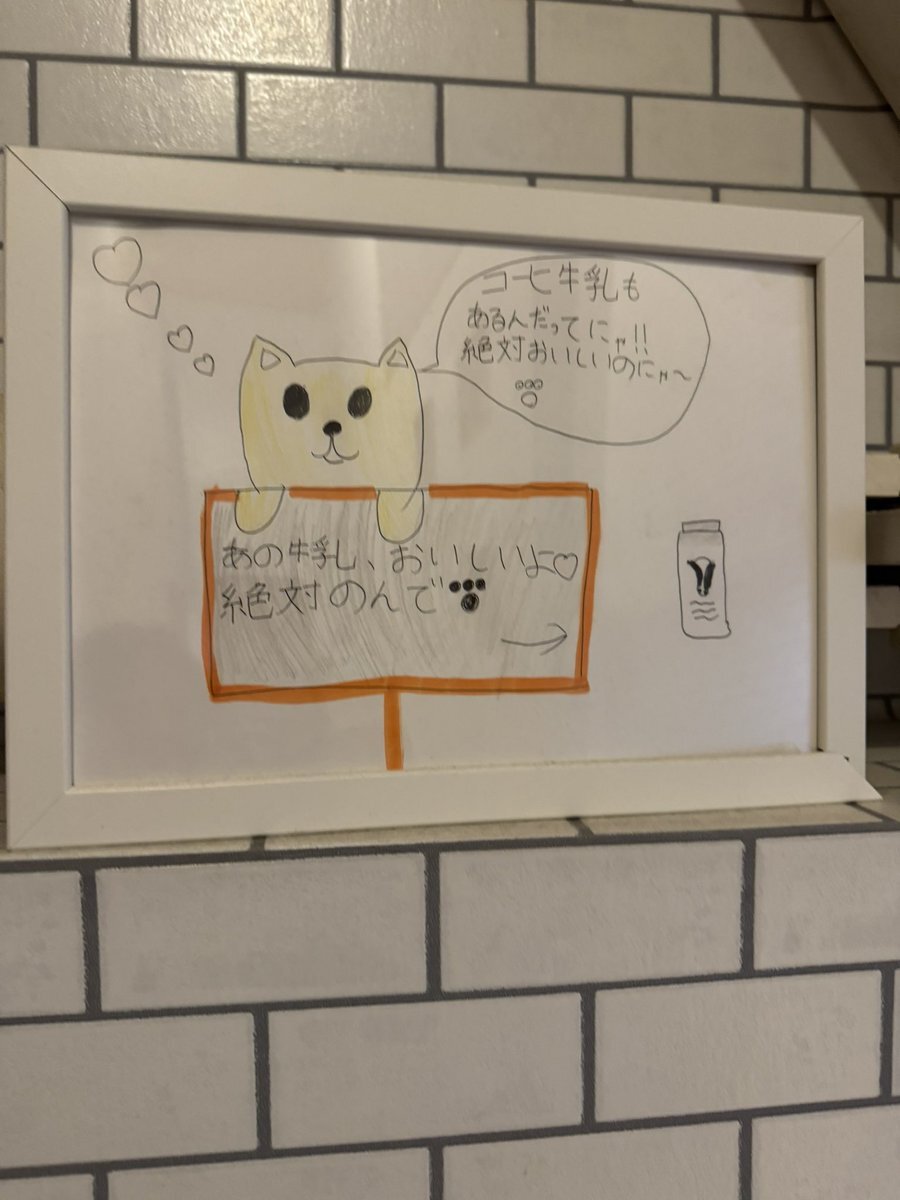 コーヒ牛乳も
あるんだってにャ!!
絶対おいしいのにャ〜
あの牛乳、おいしいよ♡
絶対のんで